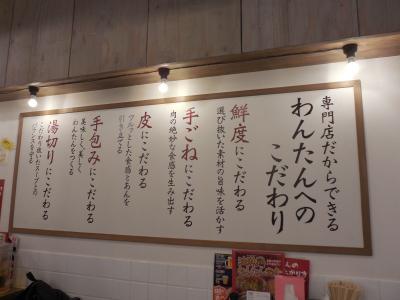 専門店だからできる
わんたんへの
こだわり
鮮度にこだわる
選び抜いた素材の旨味を活かす
手ごねにこだわる
肉の絶妙な食感を生み出す
皮にこだわる
ツルッとした食感とあんを
引き立てる
手包みにこだわる
美味しく、美しく
わんたんを包みます
湯切りにこだわる
こだわり抜いたスープとの